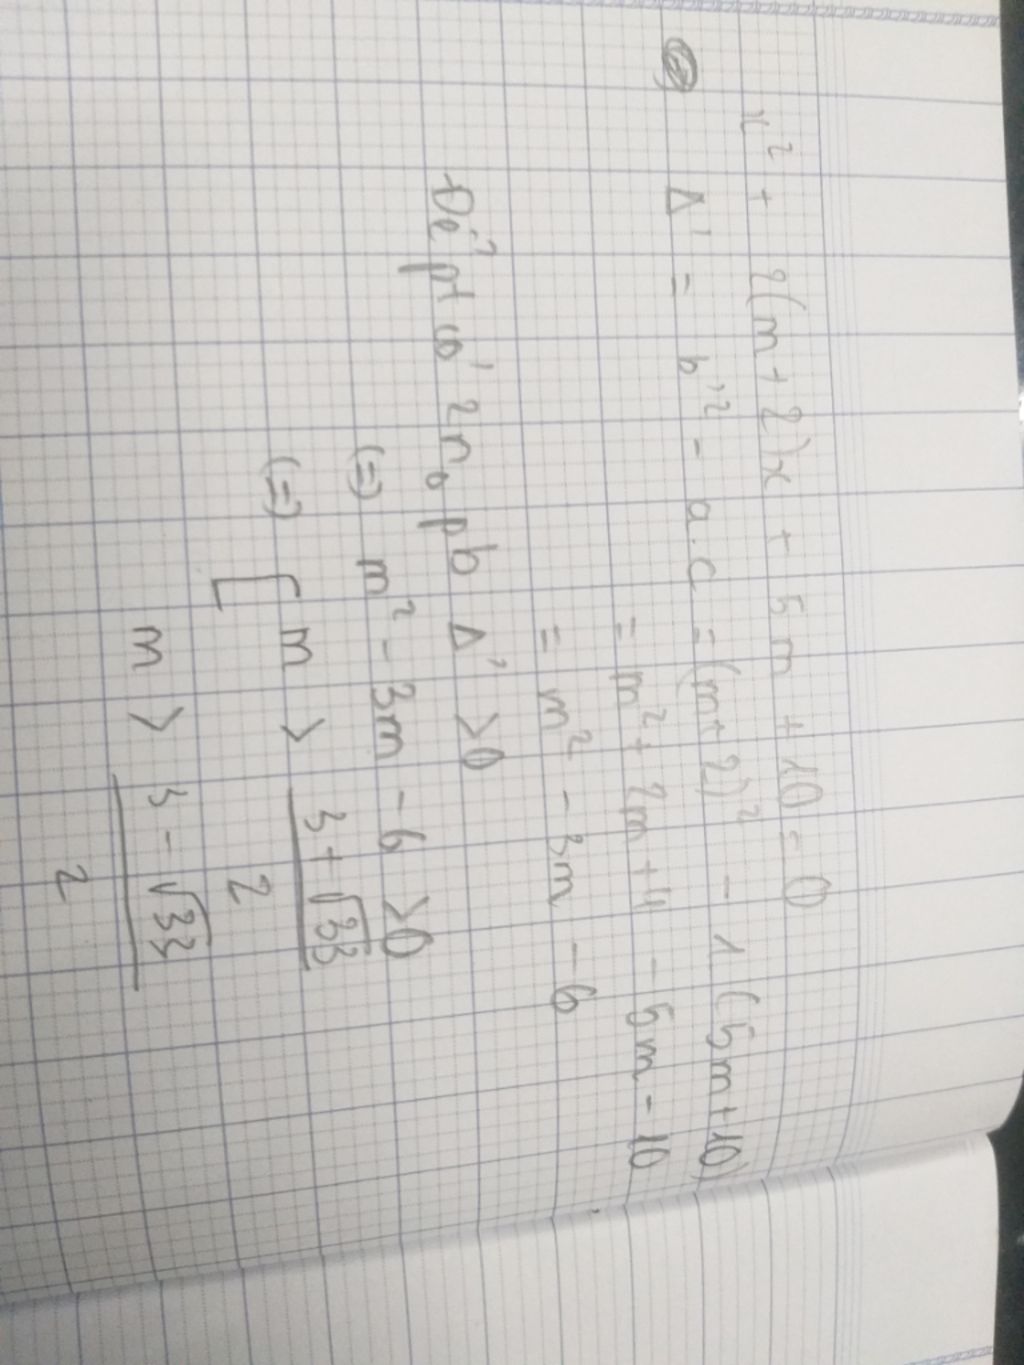 x² + 2(m+2)x + 5m + 10 = 0
Δ' = b'² - a.c = (m+2)² - 1(5m+10)
= m² + 2m + 4 - 5m - 10
= m² - 3m - 6
Để pt có 2 n₀ pb Δ' > 0
(=) m² - 3m - 6 > 0
(=) [ m > 3 + √33 / 2
m > 3 - √33 / 2